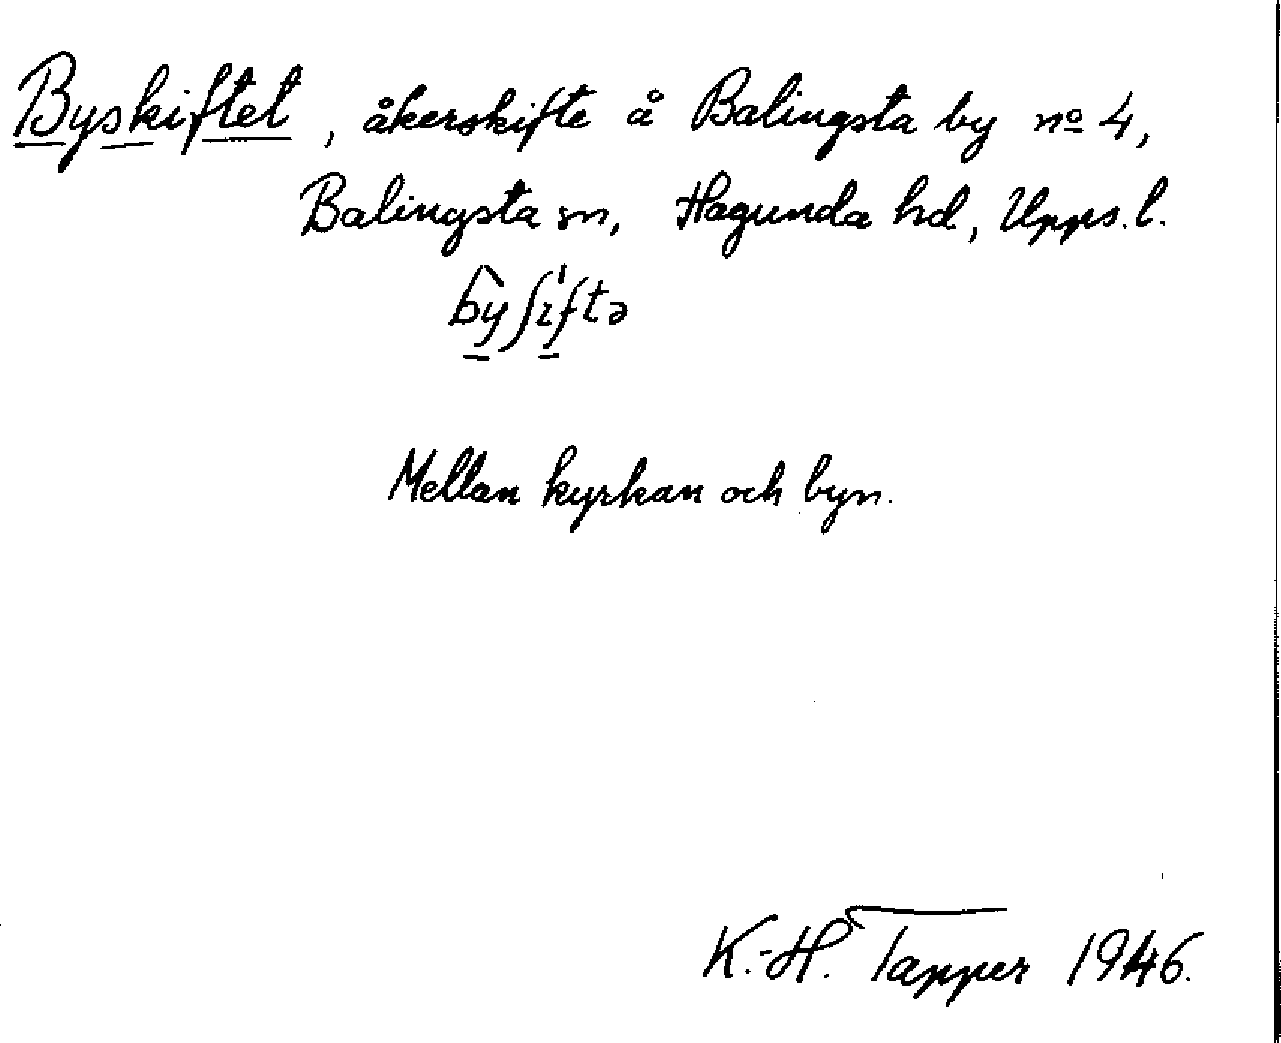 Byskiftet, åkerskifte å Balingsta by nº 4,
Balingsta sn, Hagunda hd, Upps. l.
by ʃiftə
Mellan kyrkan och byn.
K.-H. Tapper 1946.